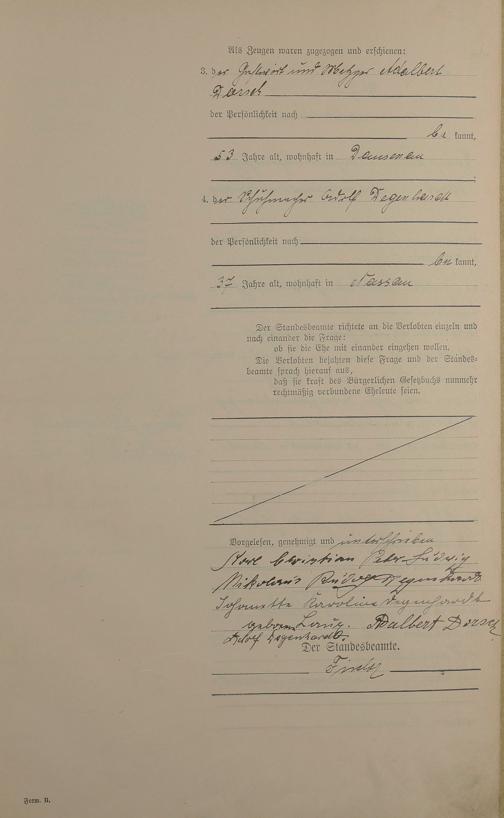 Als Zeugen waren zugezogen und erschienen:
3. der Gastwirt und Metzger Adalbert
Dorsch
der Persönlichkeit nach
be kannt,
53 Jahre alt, wohnhaft in Dausenau
4. der Schuhmacher Adolf Degenhardt
der Persönlichkeit nach
be kannt,
37 Jahre alt, wohnhaft in Nassau
Der Standesbeamte richtete an die Verlobten einzeln und
nach einander die Frage:
ob sie die Ehe mit einander eingehen wollen.
Die Verlobten bejahten diese Frage und der Standes-
beamte sprach hierauf aus,
daß sie kraft des Bürgerlichen Gesetzbuchs nunmehr
rechtmäßig verbundene Eheleute seien.
Vorgelesen, genehmigt und unterschrieben
Karl Christian Peter Ludwig
Nikolaus Degenhardt
Johanette Karoline Degenhardt
geborene Adalbert Dorsch
Adolf Degenhardt.
Der Standesbeamte.
Form. B.